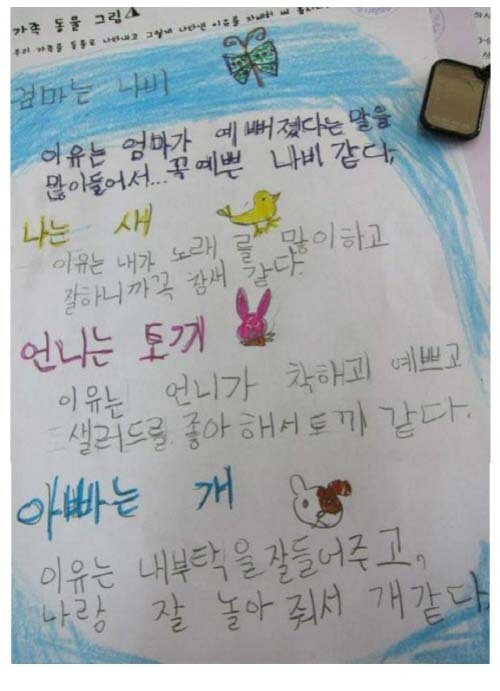 가족 동물 그림
우리 가족을 동물로 나타내고 그렇게 나타낸 이유를 자세히 써 봅시다
엄마는 나비
이유는 엄마가 예뻐졌다는 말을
많이들어서...꼭예쁜 나비 같다,
나는 새
이유는 내가 노래를 많이하고
잘하니까꼭 참새 같다.
언니는 토끼
이유는 언니가 착해고 예쁘고
샐러드를 좋아해서토끼 같다.
아빠는 개
이유는 내부탁을잘들어주고,
나랑 잘 놀아줘서 개같다